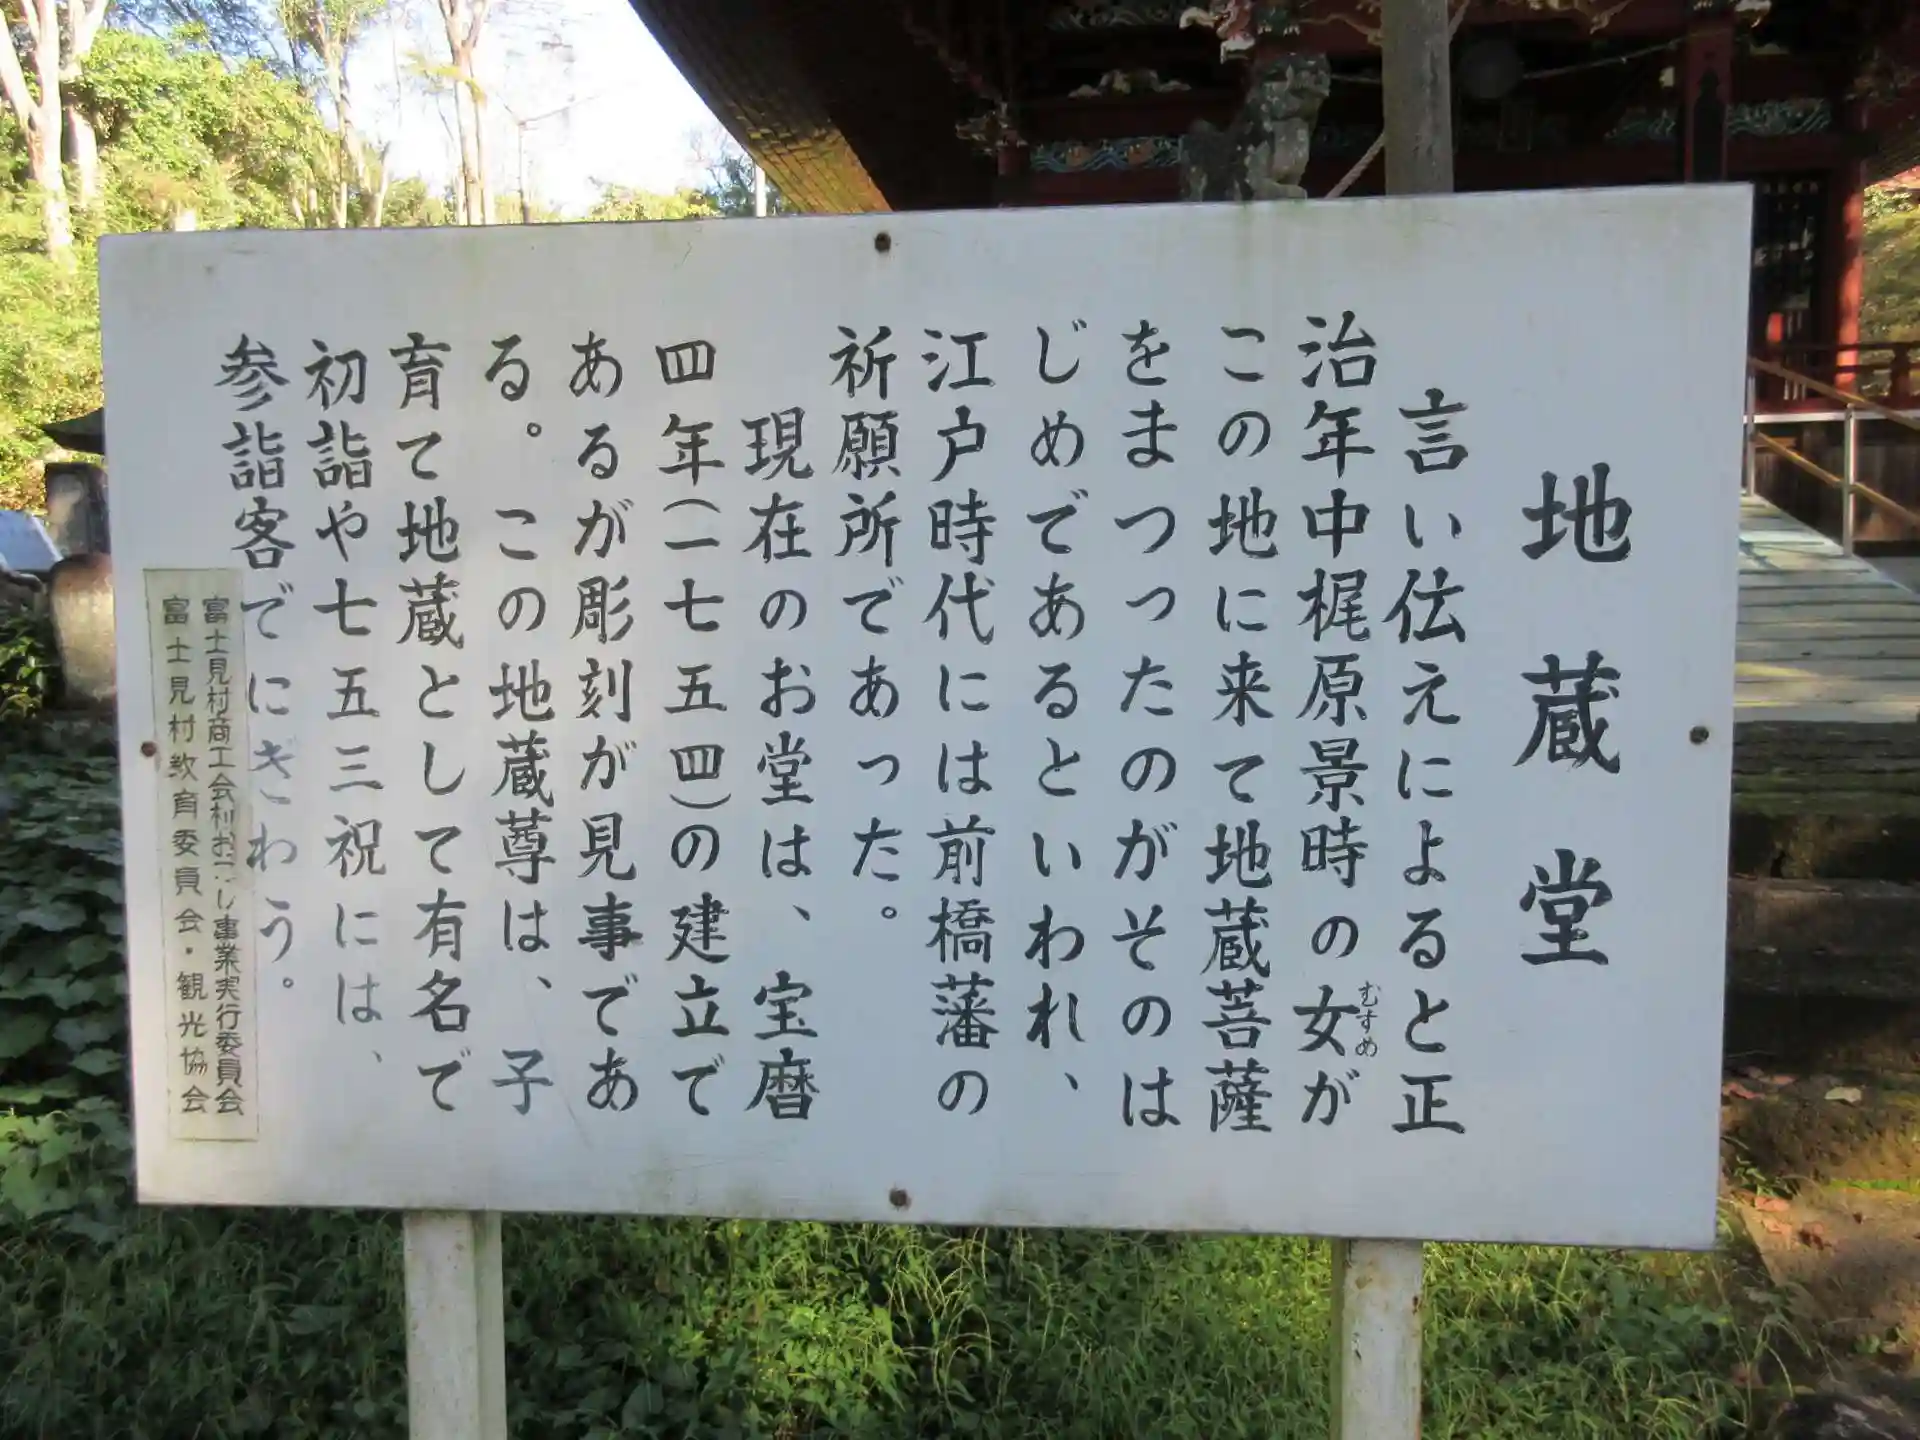 地蔵堂
言い伝えによると正
治年中梶原景時の女が
むすめ
この地に来て地蔵菩薩
をまつったのがそのは
じめであるといわれ、
江戸時代には前橋藩の
祈願所であった。
現在のお堂は、宝暦
四年(一七五四)の建立で
あるが彫刻が見事であ
る。この地蔵尊は、子
育て地蔵として有名で
初詣や七五三祝には、
参詣客でにぎわう。
富士見村商工会村おこし事業実行委員会
富士見村教育委員会・観光協会